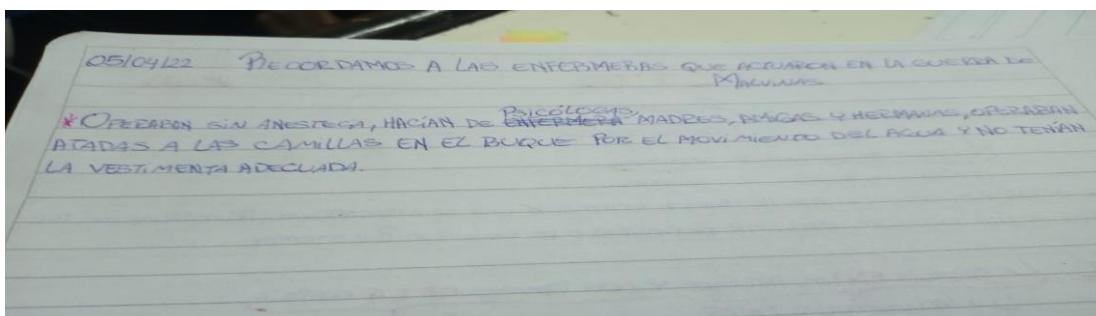 05/04/22 RECORDAMOS A LAS ENFERMERAS QUE ACTUARON EN LA GUERRA DE
MALVINAS
PSICÓLOGAS,
* OPERARON SIN ANESTECIA, HACÍAN DE ENFERMERA MADRES, AMIGAS Y HERMANAS, OPERABAN
ATADAS A LAS CAMILLAS EN EL BUQUE POR EL MOVIMIENTO DEL AGUA Y NO TENÍAN
LA VESTIMENTA ADECUADA.